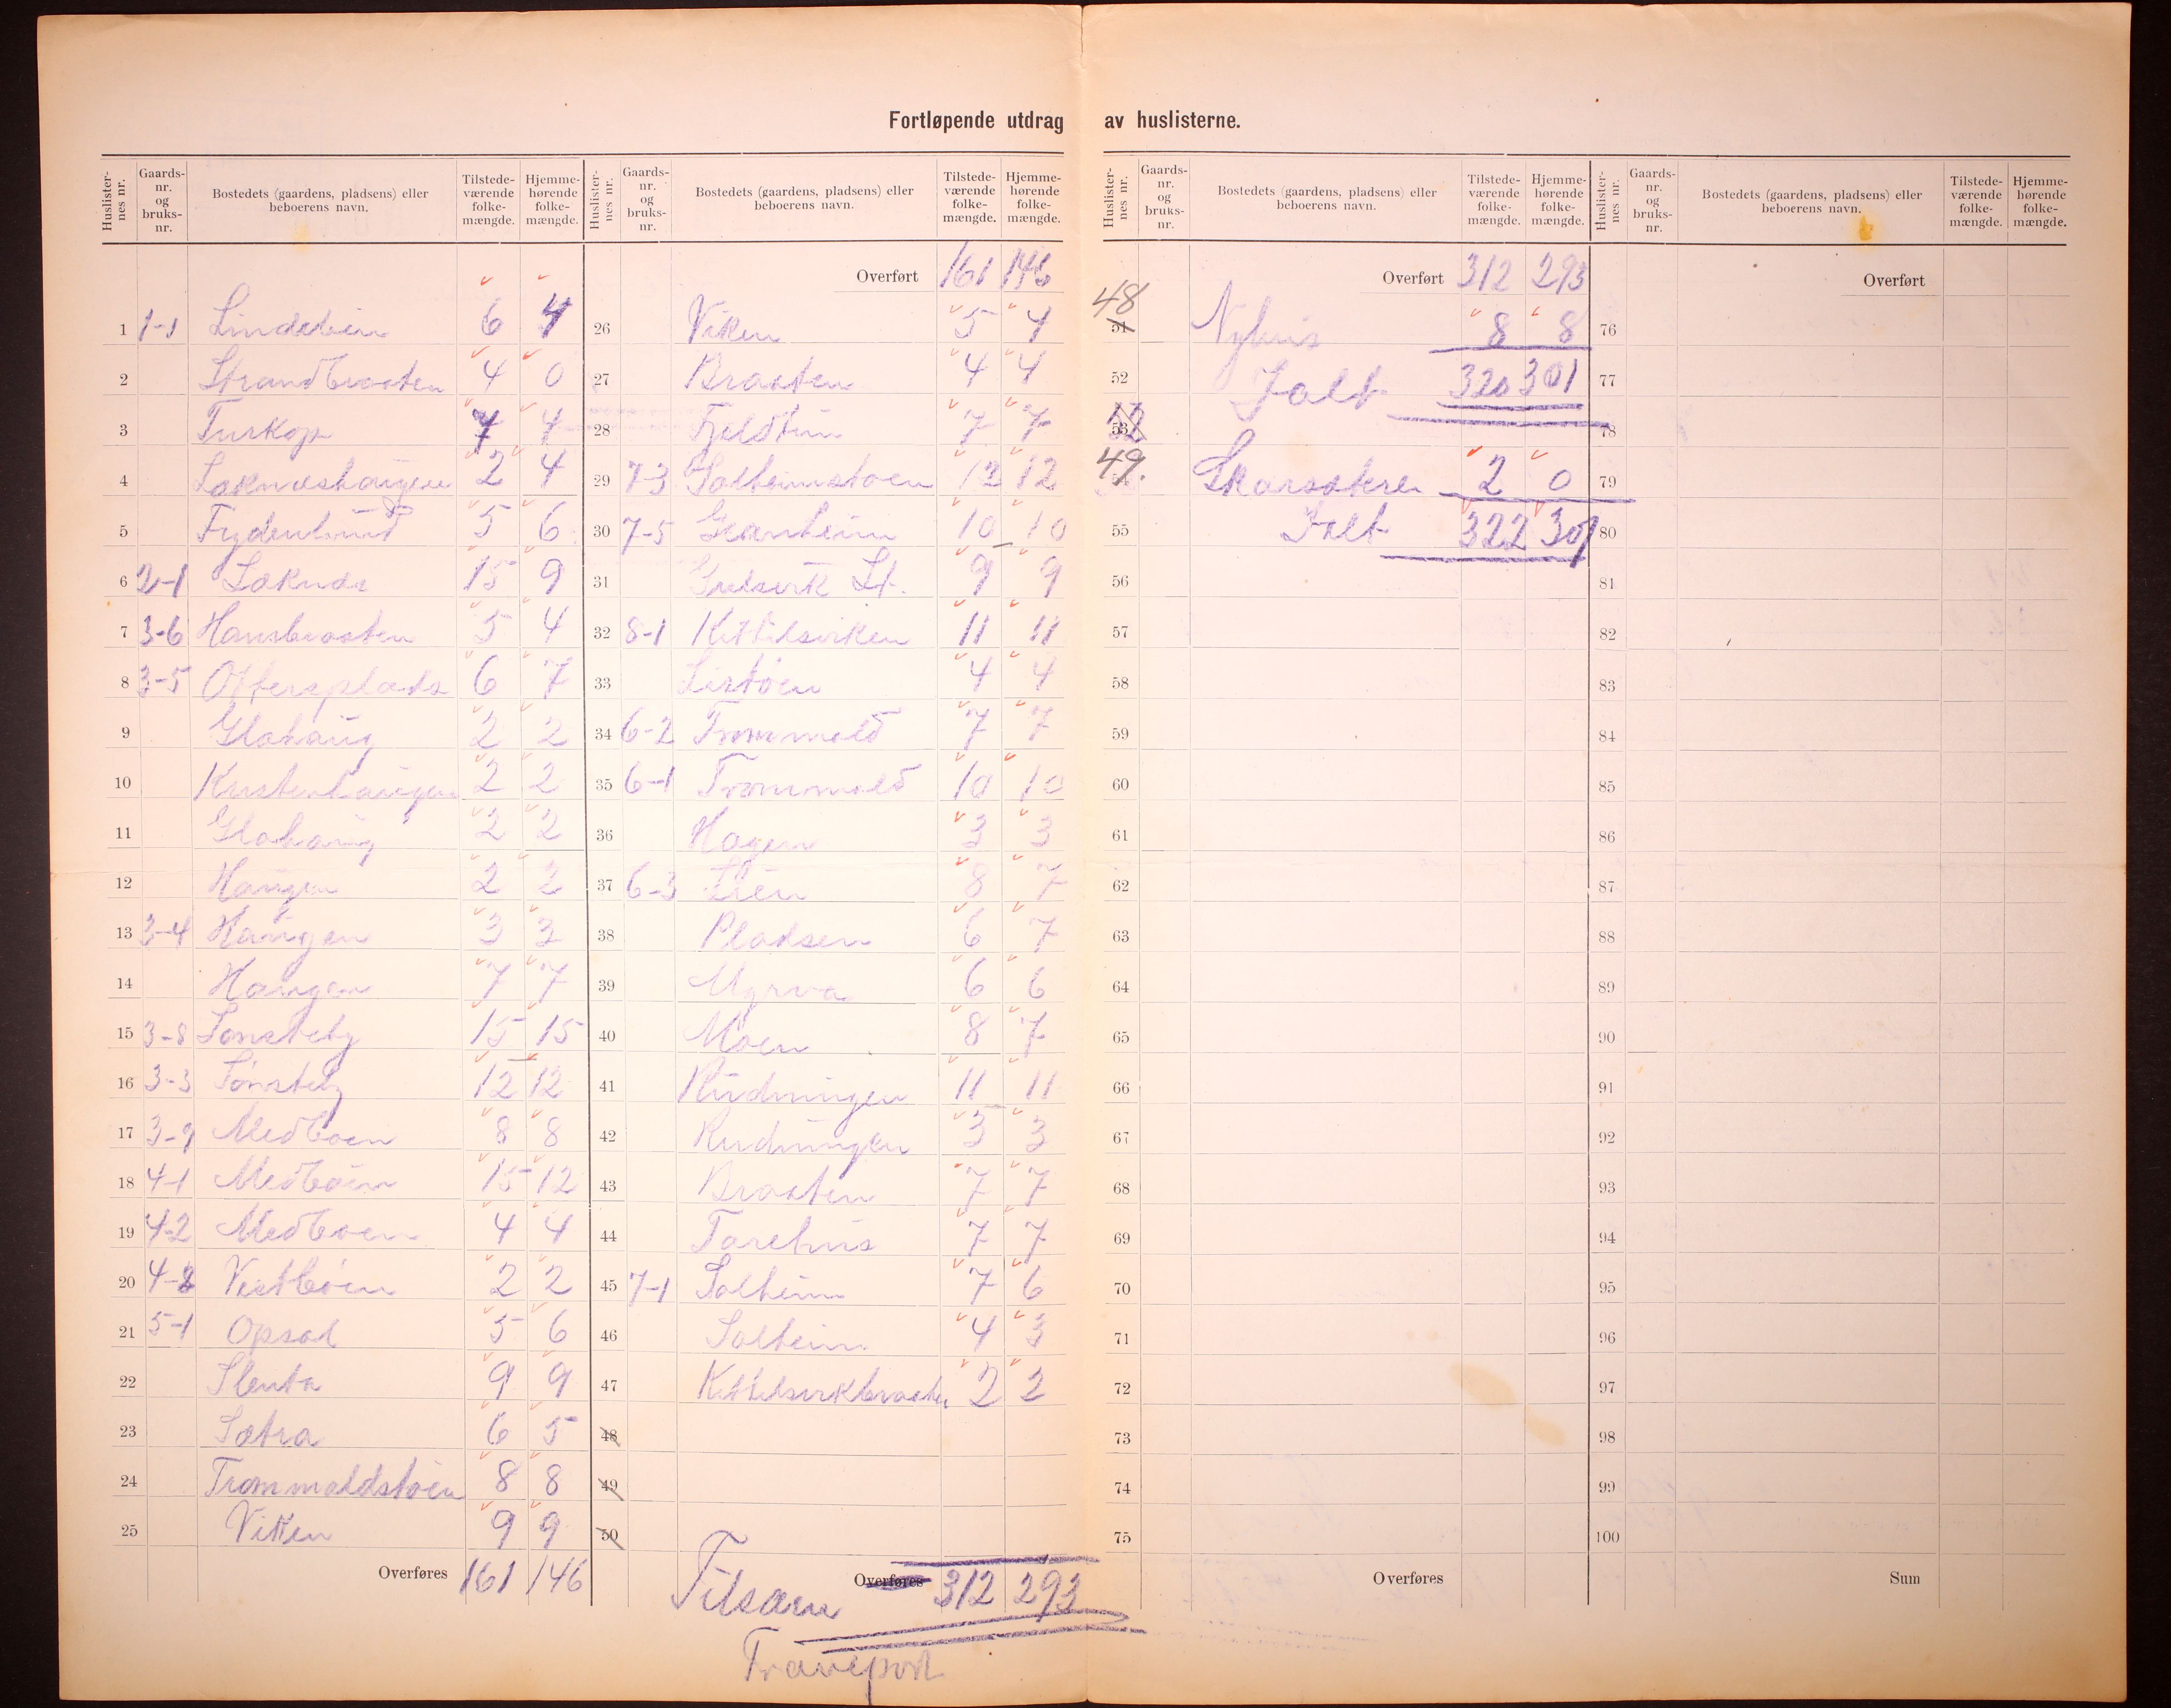 Fortløpende utdrag av huslisterne.
Huslisternes nr. Gaardsnr. og bruksnr. Bostedets (gaardens, pladsens) eller beboerens navn. Tilstedeværende folkemængde. Hjemmehørende folkemængde.
1 1-1 Lindelien 6 4
2 Strandbraaten 4 0
3 Turkop 7 4
4 Lakneshaugen 2 4
5 Frydenlund 5 6
6 2-1 Laknes 15 9
7 3-6 Hansbraaten 5 4
8 3-5 Offersplads 6 7
9 Glahaug 2 2
10 Kustenhaugen 2 2
11 Glahaug 2 2
12 Haugen 2 2
13 3-4 Haugen 3 3
14 Haugen 7 7
15 3-8 Tønsteby 15 15
16 3-3 Tønsteby 12 12
17 3-9 Medbøen 8 8
18 4-1 Medbøen 15 12
19 4-2 Medbøen 4 4
20 Vestbøen 2 2
21 5-1 Opsal 5 6
22 Slenta 9 9
23 Sætra 6 5
24 Trommaldstøen 8 8
25 Viken 9 9
Overføres 161 146
Huslisternes nr. Gaardsnr. og bruksnr. Bostedets (gaardens, pladsens) eller beboerens navn. Tilstedeværende folkemængde. Hjemmehørende folkemængde.
Overført 161 146
26 Viken 5 4
27 Braaten 4 4
28 Fjeldheim 7 7
29 7-3 Solheimstøen 12 12
30 7-5 Granheim 10 10
31 Gulsvik St. 9 9
32 8-1 Kittilsviken 11 11
33 Listøen 4 4
34 6-2 Trommald 7 7
35 6-1 Trommald 10 10
36 Hagen 3 3
37 6-3 Lien 8 7
38 Pladsen 6 7
39 Myrva 6 6
40 Moen 8 7
41 Rudningen 11 11
42 Rudningen 3 3
43 Braaten 7 7
44 Torehus 7 7
45 7-1 Solheim 7 6
46 Solheim 4 3
47 Kittilsvikbraaten 2 2
48
49
50
Overføres
Tilsam 312 293
Transport
Huslisternes nr. Gaardsnr. og bruksnr. Bostedets (gaardens, pladsens) eller beboerens navn. Tilstedeværende folkemængde. Hjemmehørende folkemængde.
Overført 312 293
48 51 Nyhus 8 8
52 Ialt 320 301
53
49. Skarsætren 2 0
55 Ialt 322 301
56
57
58
59
60
61
62
63
64
65
66
67
68
69
70
71
72
73
74
75
Overføres
Huslisternes nr. Gaardsnr. og bruksnr. Bostedets (gaardens, pladsens) eller beboerens navn. Tilstedeværende folkemængde. Hjemmehørende folkemængde.
Overført
76
77
78
79
80
81
82
83
84
85
86
87
88
89
90
91
92
93
94
95
96
97
98
99
100
Sum